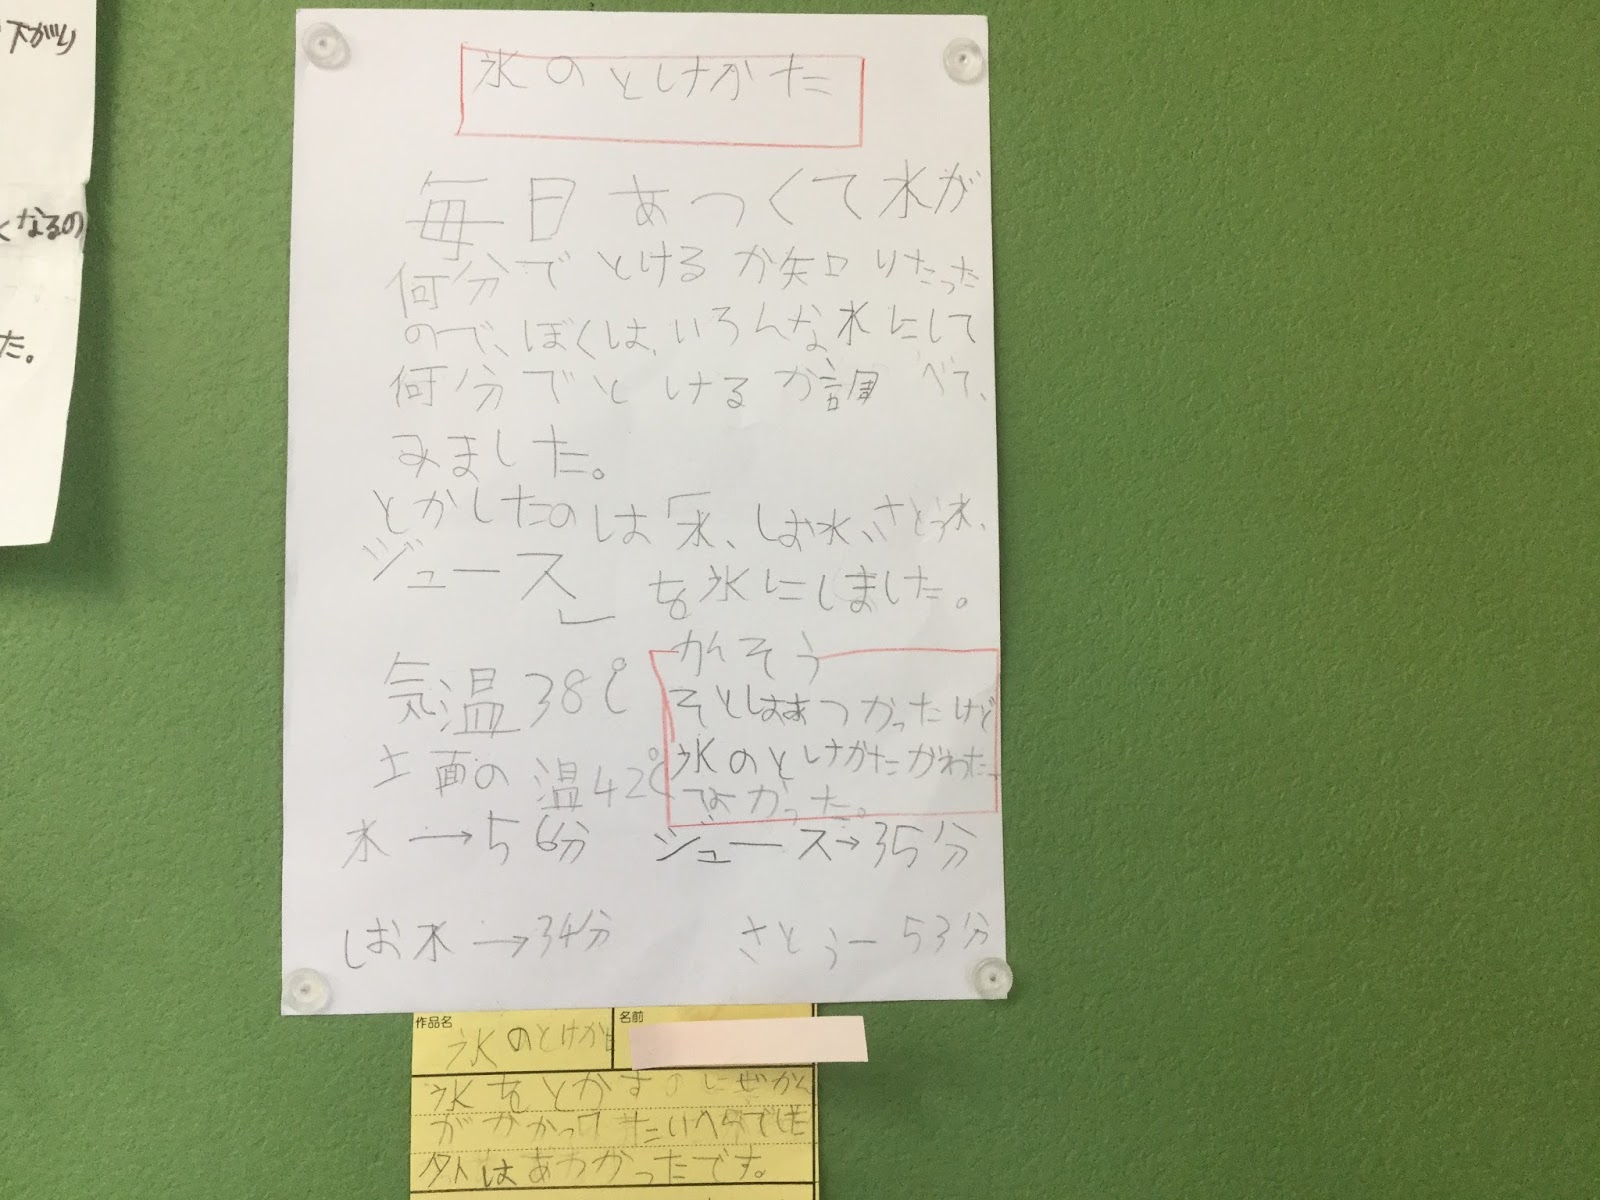 下がり
くなるの
た。
氷のとけかた
毎日あつくて水が
何分でとけるか知りたった
ので、ぼくは、いろんな水にして
何分でとけるか調べて、
みました。
とかしたのは「水、しお水、さとう水、
ジュース」を氷にしました。
かんそう
気温38℃
そとはあつかったけど
土面の温42℃
氷のとけかたがわたっ
なかった。
水→56分 ジュース→35分
しお水→34分 さとうー53分
作品名 名前
氷のとけか
氷をとかすのにぜかん
がかかってたいへんでした
外はあつかったです。